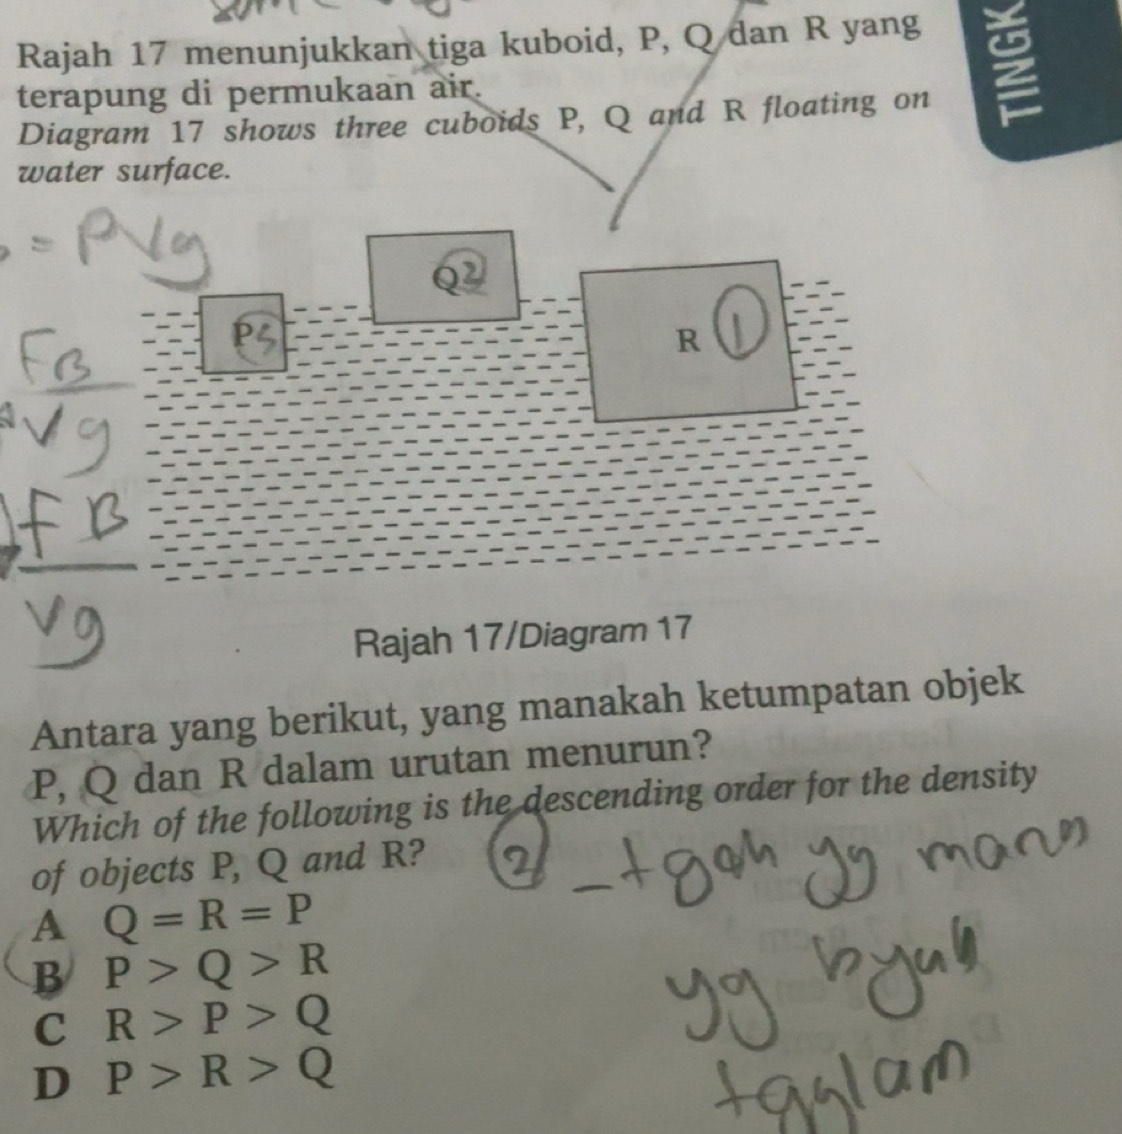 TINGK
Rajah 17 menunjukkan tiga kuboid, P, Q dan R yang
terapung di permukaan air.
Diagram 17 shows three cuboids P, Q and R floating on
water surface.
= PVg
Q 2
P
R 1
FB
Vg
FB
Vg
Rajah 17/Diagram 17
Antara yang berikut, yang manakah ketumpatan objek
P, Q dan R dalam urutan menurun?
Which of the following is the descending order for the density
of objects P, Q and R?
2 - tgok yg mana
yg byak
tgglam
A Q = R = P
B P > Q > R
C R > P > Q
D P > R > Q